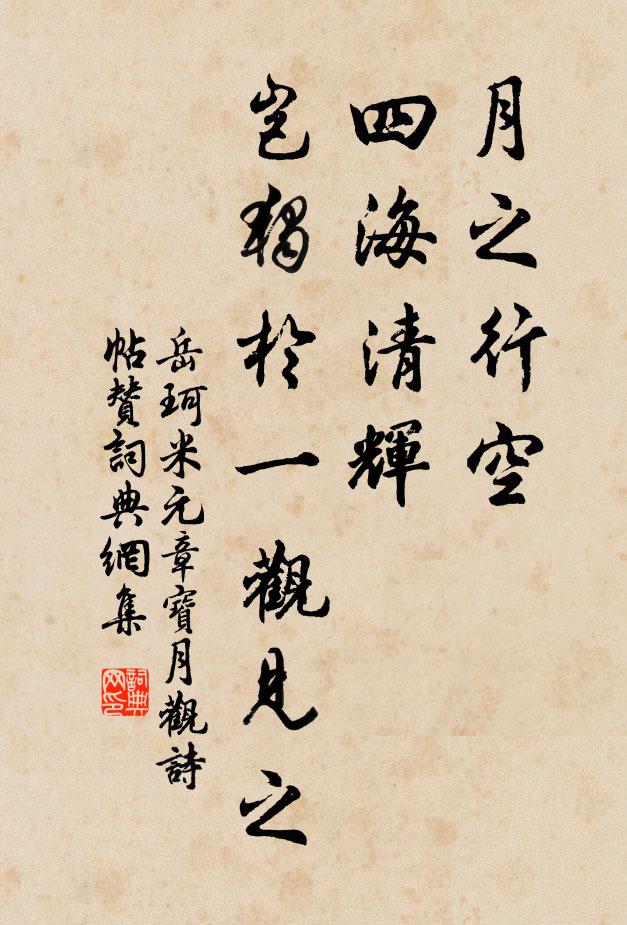 月之行空
四海清輝
豈獨於一觀見之
岳珂米元章寶月觀詩
帖贊詞典網集
詞典
网印